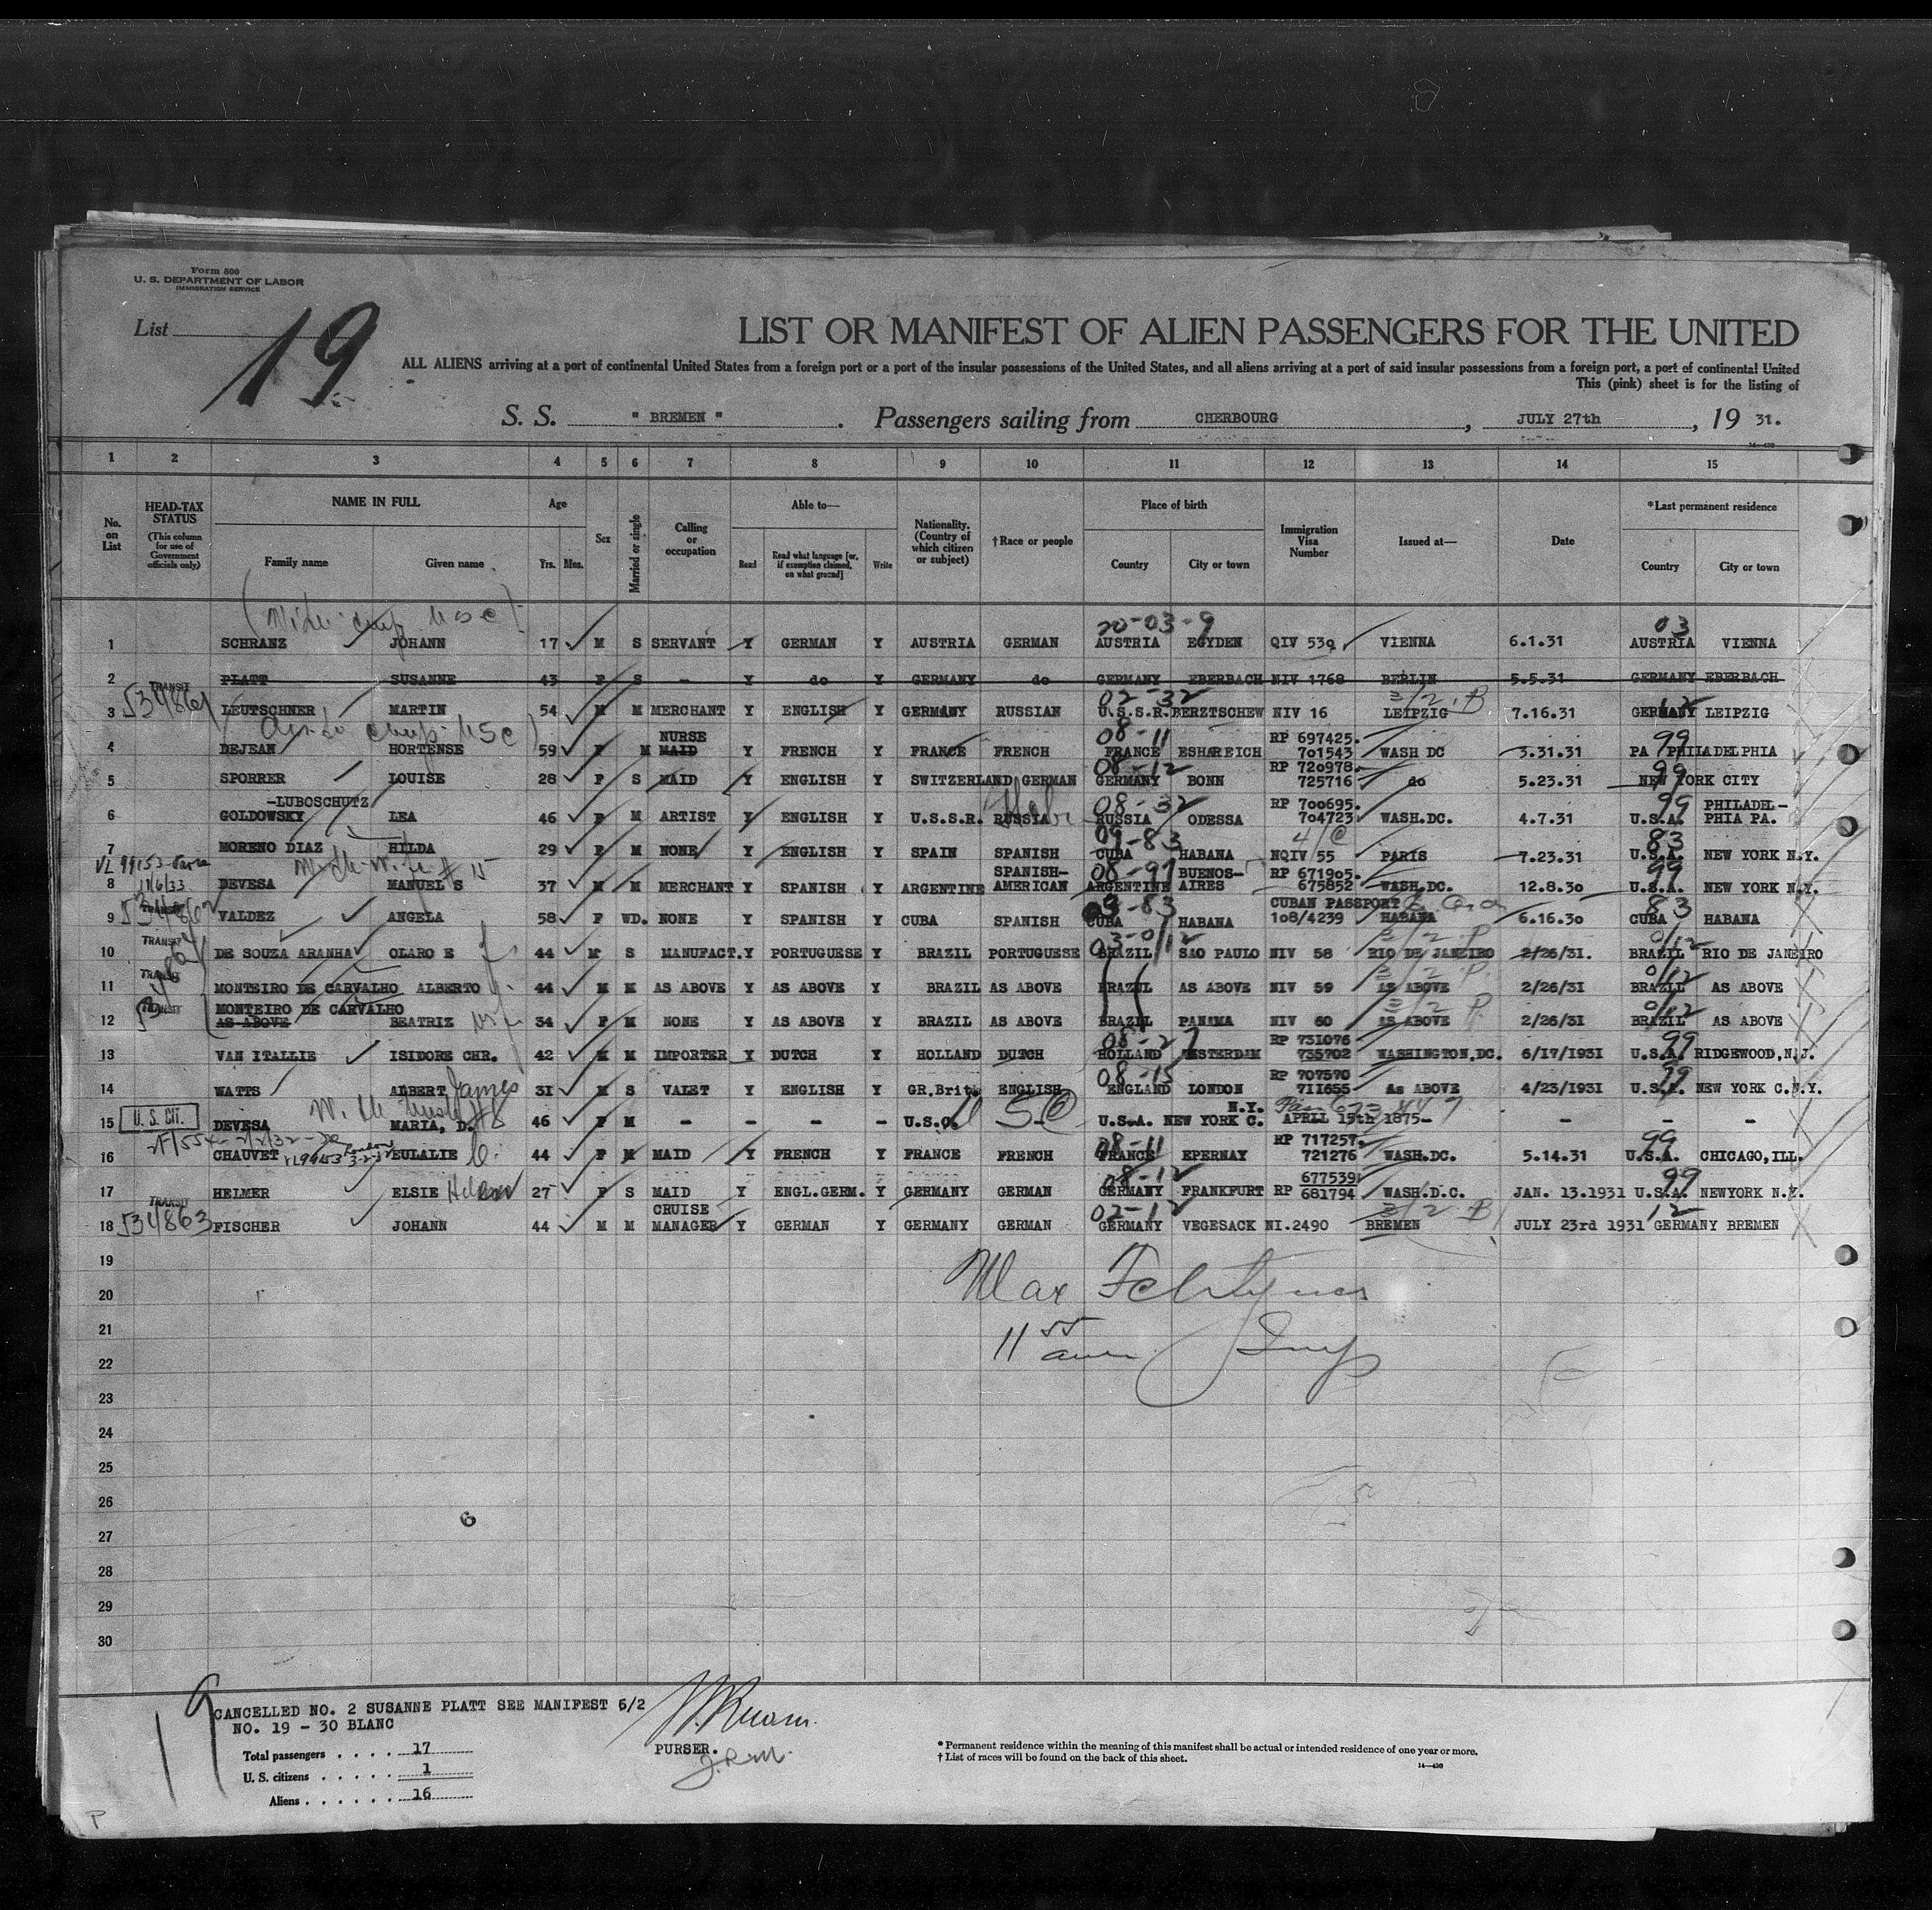 Form 500
U. S. DEPARTMENT OF LABOR
IMMIGRATION SERVICE
List 19
LIST OR MANIFEST OF ALIEN PASSENGERS FOR THE UNITED
ALL ALIENS arriving at a port of continental United States from a foreign port or a port of the insular possessions of the United States, and all aliens arriving at a port of said insular possessions from a foreign port, a port of continental United
This (pink) sheet is for the listing of
S. S. " BREMEN ". Passengers sailing from CHERBOURG, JULY 27th, 19 31.
1 2 3 4 5 6 7 8 9 10 11 12 13 14 15
No. on List
HEAD-TAX STATUS (This column for use of Government officials only)
NAME IN FULL Family name Given name
Age Yrs. Mos.
Sex
Married or single
Calling or occupation
Able to— Read Read what language [or, if exemption claimed, on what ground] Write
Nationality. (Country of which citizen or subject)
†Race or people
Place of birth Country City or town
Immigration Visa Number
Issued at—
Date
*Last permanent residence Country City or town
20-03-9 03
1 SCHRANZ JOHANN 17 M S SERVANT Y GERMAN Y AUSTRIA GERMAN AUSTRIA EGYDEN QIV 539 VIENNA 6.1.31 AUSTRIA VIENNA
2 PLATT SUSANNE 43 F S - Y do Y GERMANY do GERMANY EBERBACH NIV 1768 BERLIN 5.5.31 GERMANY EBERBACH
TRANSIT 534861 02-32 3/2 B 12
3 LEUTSCHNER MARTIN 54 M M MERCHANT Y ENGLISH Y GERMANY RUSSIAN U.S.S.R. BERZTSCHEW NIV 16 LEIPZIG 7.16.31 GERMANY LEIPZIG
NURSE 08-11 RP 697425. 99
4 DEJEAN HORTENSE 59 F M MAID Y FRENCH Y FRANCE FRENCH FRANCE ESHAREICH 701543 WASH DC 3.31.31 PA PHILADELPHIA
08-12 RP 720978. 99
5 SPORRER LOUISE 28 F S MAID Y ENGLISH Y SWITZERLAND GERMAN GERMANY BONN 725716 do 5.23.31 NEW YORK CITY
-LUBOSCHUTZ 08-32 RP 700695. 99 PHILADEL-
6 GOLDOWSKY LEA 46 F M ARTIST Y ENGLISH Y U.S.S.R. RUSSIA RUSSIA ODESSA 704723 WASH.DC. 4.7.31 U.S.A. PHIA PA.
09-83 83
7 MORENO DIAZ HILDA 29 F M NONE Y ENGLISH Y SPAIN SPANISH CUBA HABANA NQIV 55 PARIS 7.23.31 U.S.A. NEW YORK N.Y.
SPANISH- 08-97 BUENOS- RP 671905. 99
8 DEVESA MANUEL S 37 M M MERCHANT Y SPANISH Y ARGENTINE AMERICAN ARGENTINE AIRES 675852 WASH.DC. 12.8.30 U.S.A. NEW YORK N.Y.
534862 09-83 CUBAN PASSPORT 83
9 VALDEZ ANGELA 58 F WD. NONE Y SPANISH Y CUBA SPANISH CUBA HABANA 108/4239 HABANA 6.16.30 CUBA HABANA
TRANSIT 3/2 P 0/12
10 DE SOUZA ARANHA OLARO E 44 M S MANUFACT. Y PORTUGUESE Y BRAZIL PORTUGUESE BRAZIL SAO PAULO NIV 58 RIO DE JANEIRO 2/26/31. BRAZIL RIO DE JANEIRO
TRANSIT 3/2 P. 0/12
11 MONTEIRO DE CARVALHO ALBERTO 44 M M AS ABOVE Y AS ABOVE Y BRAZIL AS ABOVE BRAZIL AS ABOVE NIV 59 AS ABOVE 2/26/31 BRAZIL AS ABOVE
TRANSIT MONTEIRO DE CARVALHO 3/2 P. 0/12
12 AS ABOVE BEATRIZ 34 F M NONE Y AS ABOVE Y BRAZIL AS ABOVE BRAZIL PANAMA NIV 60 AS ABOVE 2/26/31 BRAZIL AS ABOVE
08-27 RP 731076 99
13 VAN ITALLIE ISIDORE CHR. 42 M M IMPORTER Y DUTCH Y HOLLAND DUTCH HOLLAND AMSTERDAM 735702 WASHINGTON,DC. 6/17/1931 U.S.A. RIDGEWOOD,N.J.
08-15 RP 707570 99
14 WATTS ALBERT James 31 M S VALET Y ENGLISH Y GR.Brit. ENGLISH ENGLAND LONDON 711655 As ABOVE 4/23/1931 U.S.A. NEW YORK C.N.Y.
U. S. CIT. N.Y.
15 DEVESA MARIA, D. 46 F M - - - - U.S.C. - U.S.A. NEW YORK C. APRIL 15th 1875- - - -
08-11 RP 717257. 99
16 CHAUVET EULALIE 44 F M MAID Y FRENCH Y FRANCE FRENCH FRANCE EPERNAY 721276 WASH.DC. 5.14.31 U.S.A. CHICAGO,ILL.
08-12 677539 99
17 HELMER ELSIE Helene 27 F S MAID Y ENGL.GERM. Y GERMANY GERMAN GERMANY FRANKFURT RP 681794 WASH.D.C. JAN. 13.1931 U.S.A. NEWYORK N.Y.
TRANSIT 534863 CRUISE 02-12 3/2 B 12
18 FISCHER JOHANN 44 M M MANAGER Y GERMAN Y GERMANY GERMAN GERMANY VEGESACK NI.2490 BREMEN JULY 23rd 1931 GERMANY BREMEN
19
20
21
22
23
24
25
26
27
28
29
30
19
CANCELLED NO. 2 SUSANNE PLATT SEE MANIFEST 6/2
NO. 19 - 30 BLANC
Total passengers . . . . 17
U. S. citizens . . . . . 1
Aliens . . . . . . 16
PURSER.
* Permanent residence within the meaning of this manifest shall be actual or intended residence of one year or more.
† List of races will be found on the back of this sheet.
14—430